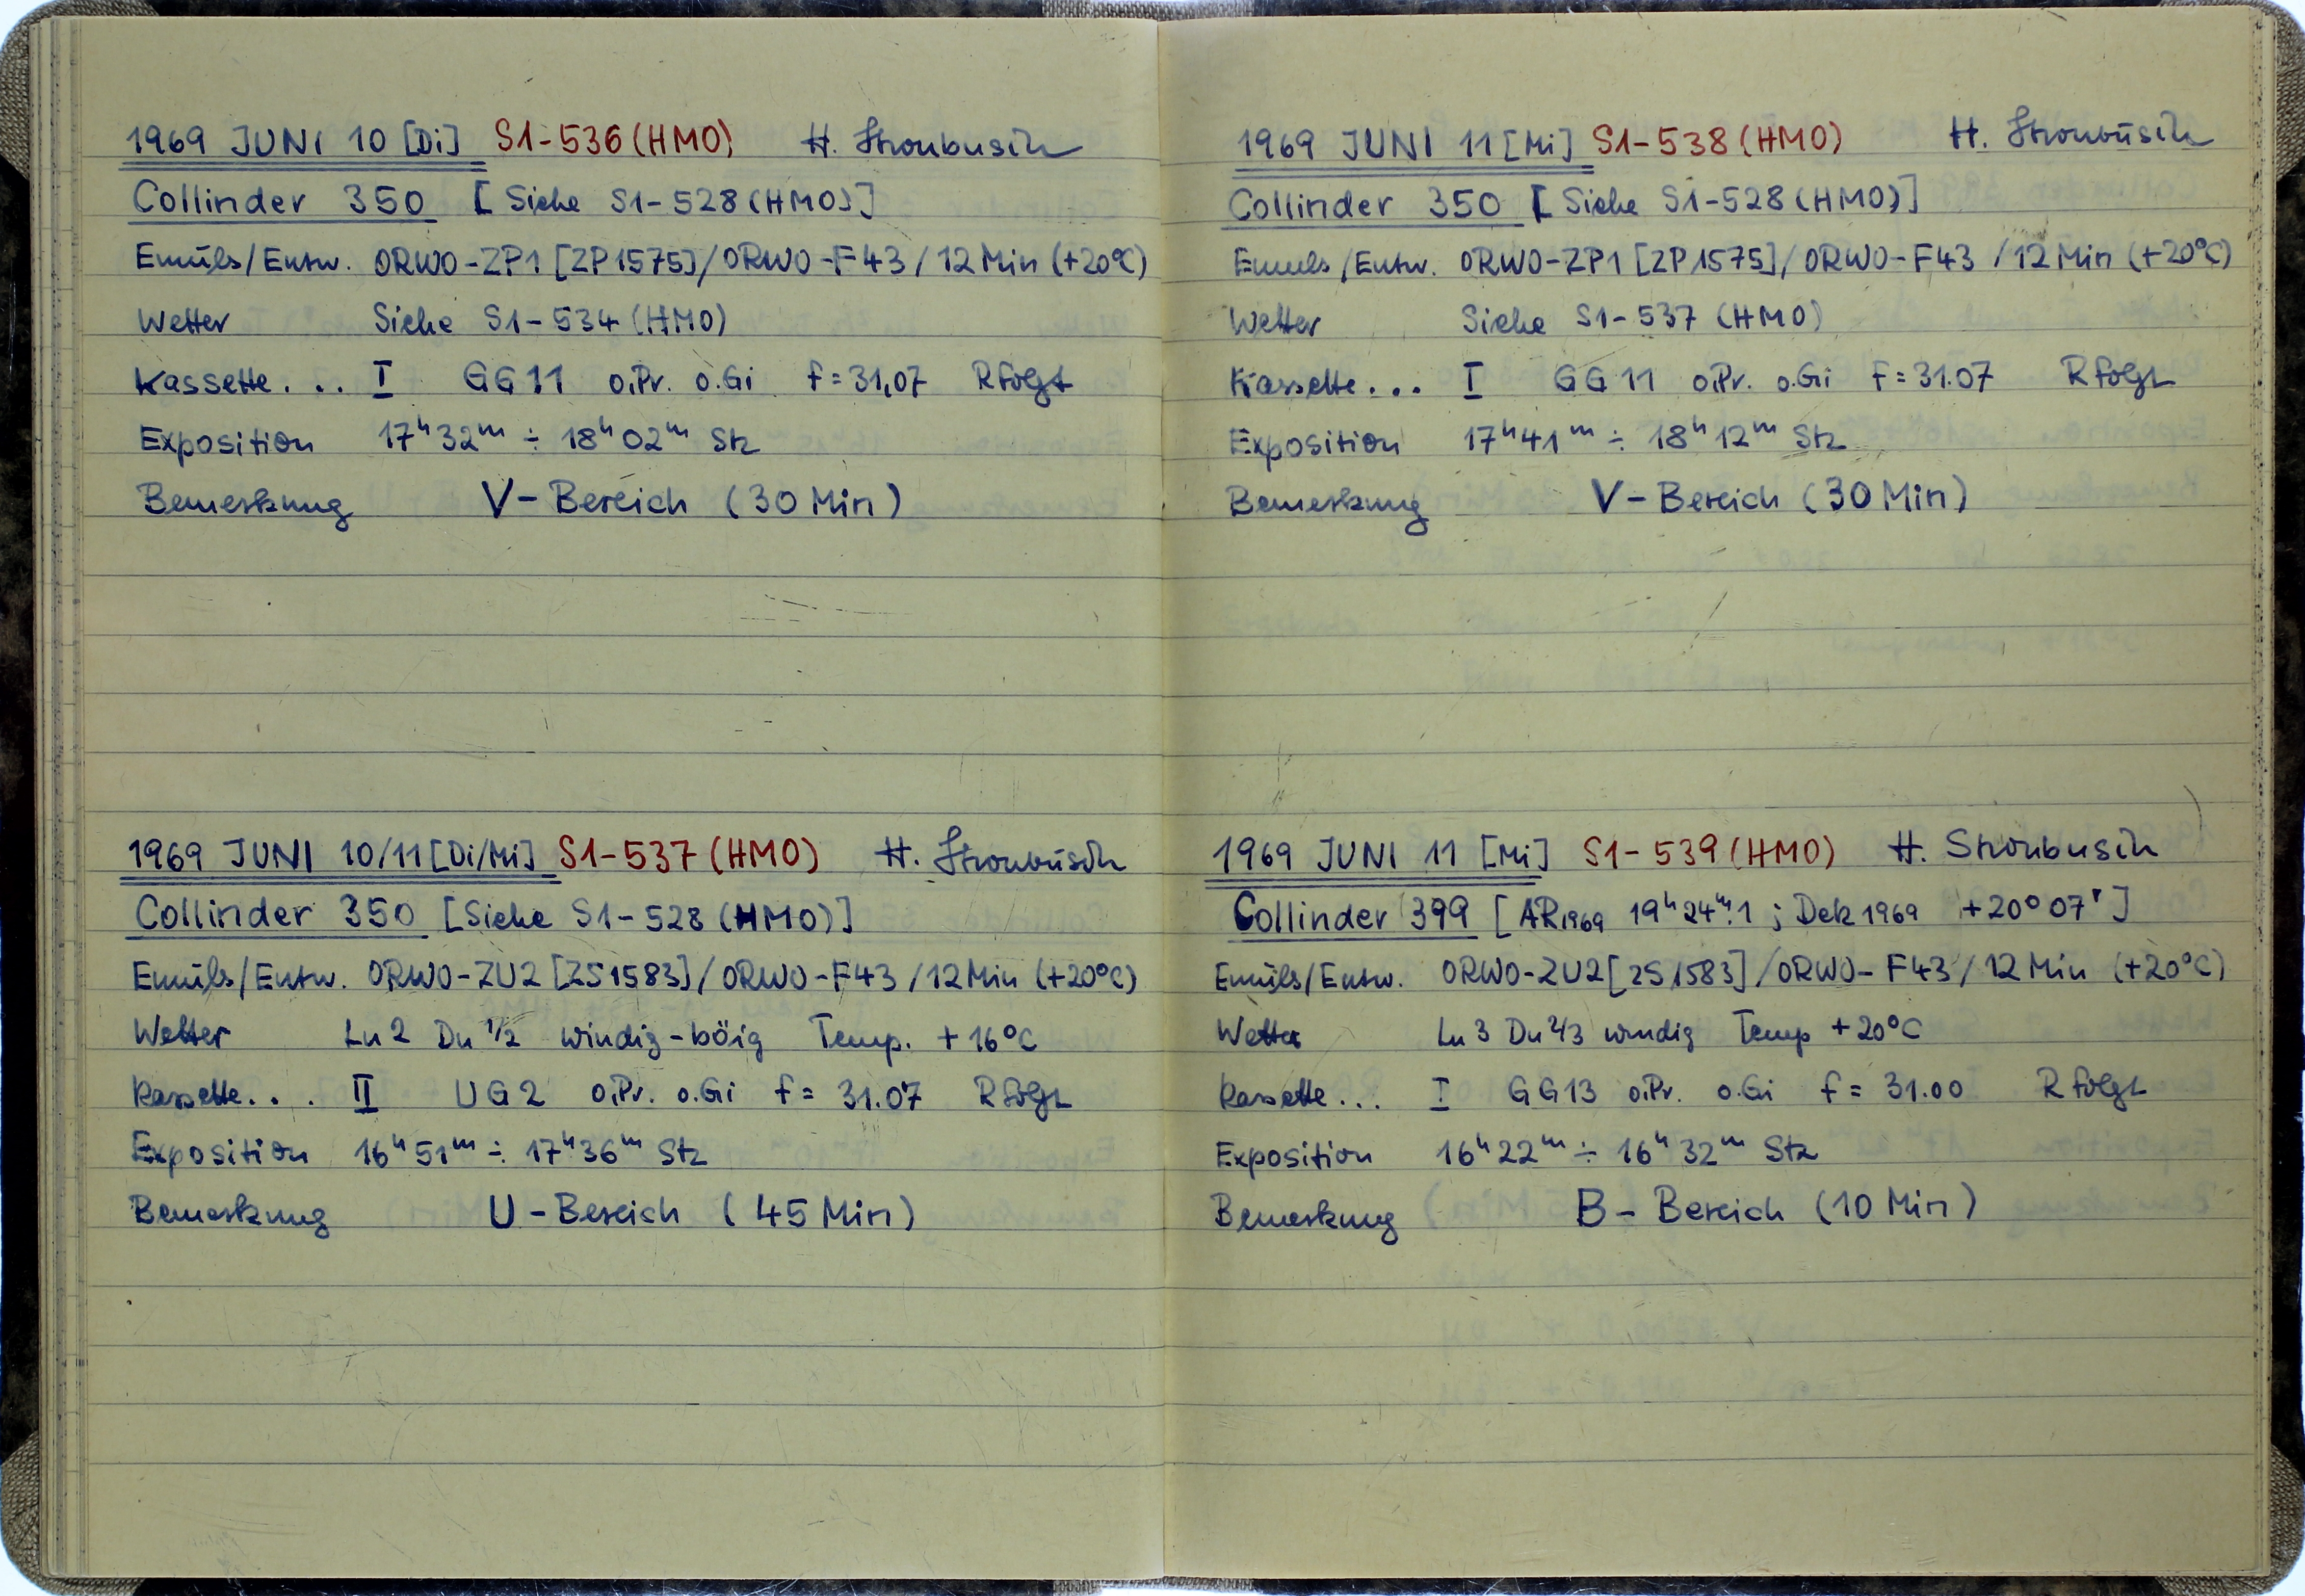 1969 JUNI 10 [Di] S1-536 (HMO) H. Stronbusch
Collinder 350 [Siehe S1-528 (HMO)]
Emuls/Entw. ORWO-ZP1 [ZP1575]/ORWO-F43/12 Min (+20°C)
Wetter Siehe S1-534 (HMO)
Kassette... I GG11 o.Pr. o.Gi f=31,07 R folgt
Exposition 17ʰ32ᵐ ÷ 18ʰ02ᵐ Stz
Bemerkung V-Bereich (30 Min)
1969 JUNI 10/11 [Di/Mi] S1-537 (HMO) H. Stronbusch
Collinder 350 [Siehe S1-528 (HMO)]
Emuls/Entw. ORWO-ZU2 [ZS1583]/ORWO-F43/12 Min (+20°C)
Wetter Ln 2 Dn 1/2 windig-böig Temp. +16°C
Kassette... II UG2 o.Pr. o.Gi f= 31.07 R folgt
Exposition 16ʰ51ᵐ ÷ 17ʰ36ᵐ Stz
Bemerkung U-Bereich (45 Min)
1969 JUNI 11 [Mi] S1-538 (HMO) H. Stronbusch
Collinder 350 [Siehe S1-528 (HMO)]
Emuls/Entw. ORWO-ZP1 [ZP1575]/ORWO-F43/12 Min (+20°C)
Wetter Siehe S1-537 (HMO)
Kassette... I GG11 o.Pr. o.Gi f=31.07 R folgt
Exposition 17ʰ41ᵐ ÷ 18ʰ12ᵐ Stz
Bemerkung V-Bereich (30 Min)
1969 JUNI 11 [Mi] S1-539 (HMO) H. Stronbusch
Collinder 399 [AR1969 19ʰ24ᵐ.1 ; Dek 1969 +20°07']
Emuls/Entw. ORWO-ZU2 [ZS1583]/ORWO-F43/12 Min (+20°C)
Wetter Ln 3 Dn 2/3 windig Temp +20°C
Kassette... I GG13 o.Pr. o.Gi f= 31.00 R folgt
Exposition 16ʰ22ᵐ ÷ 16ʰ32ᵐ Stz
Bemerkung B-Bereich (10 Min)